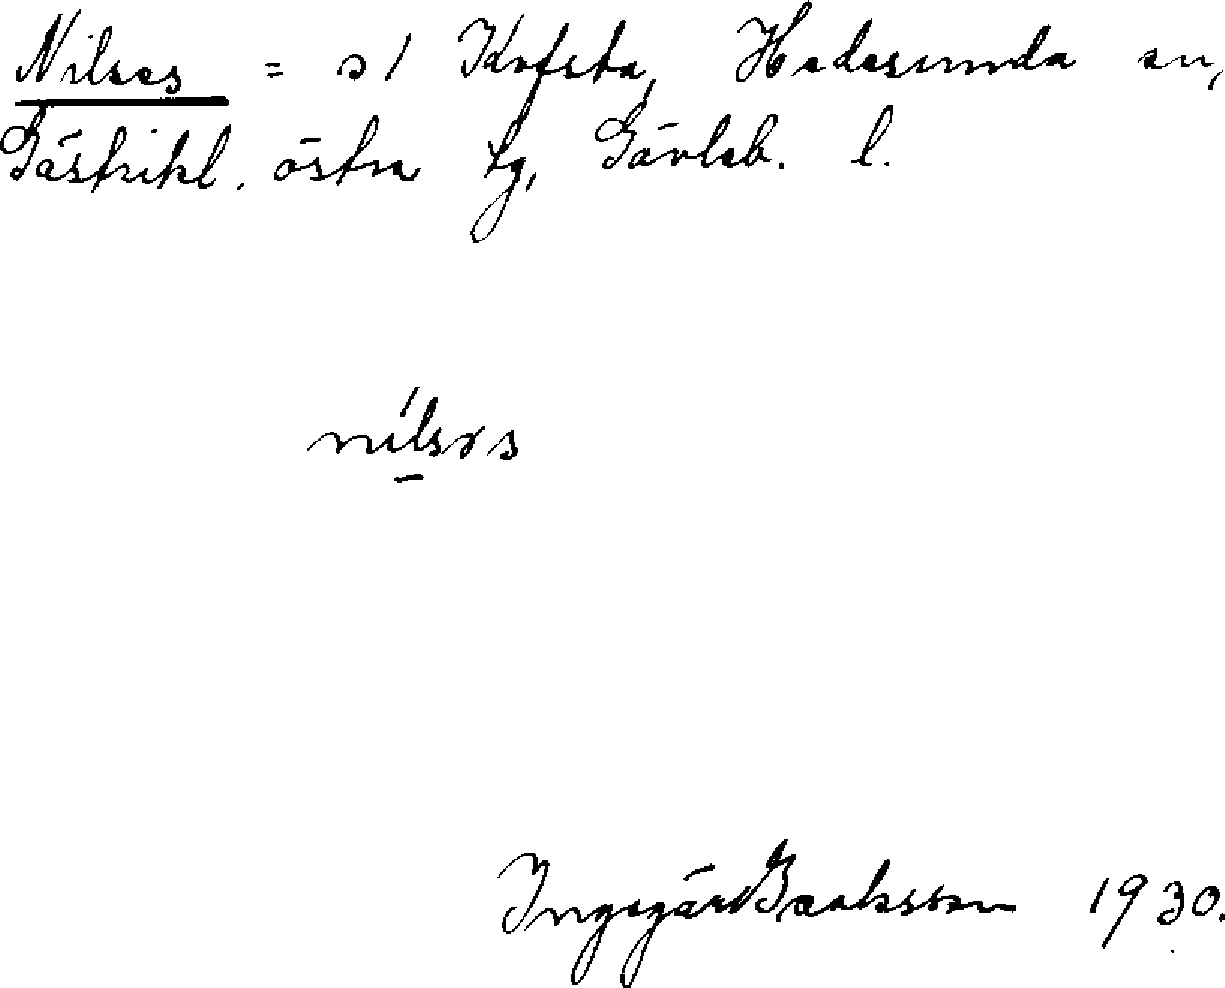 Nilses = s1 Kofsta, Hedesunda sn,
Gästrikl. östra tg, Gävleb. l.
nilsəs
Ingegärd Isaksson 1930.